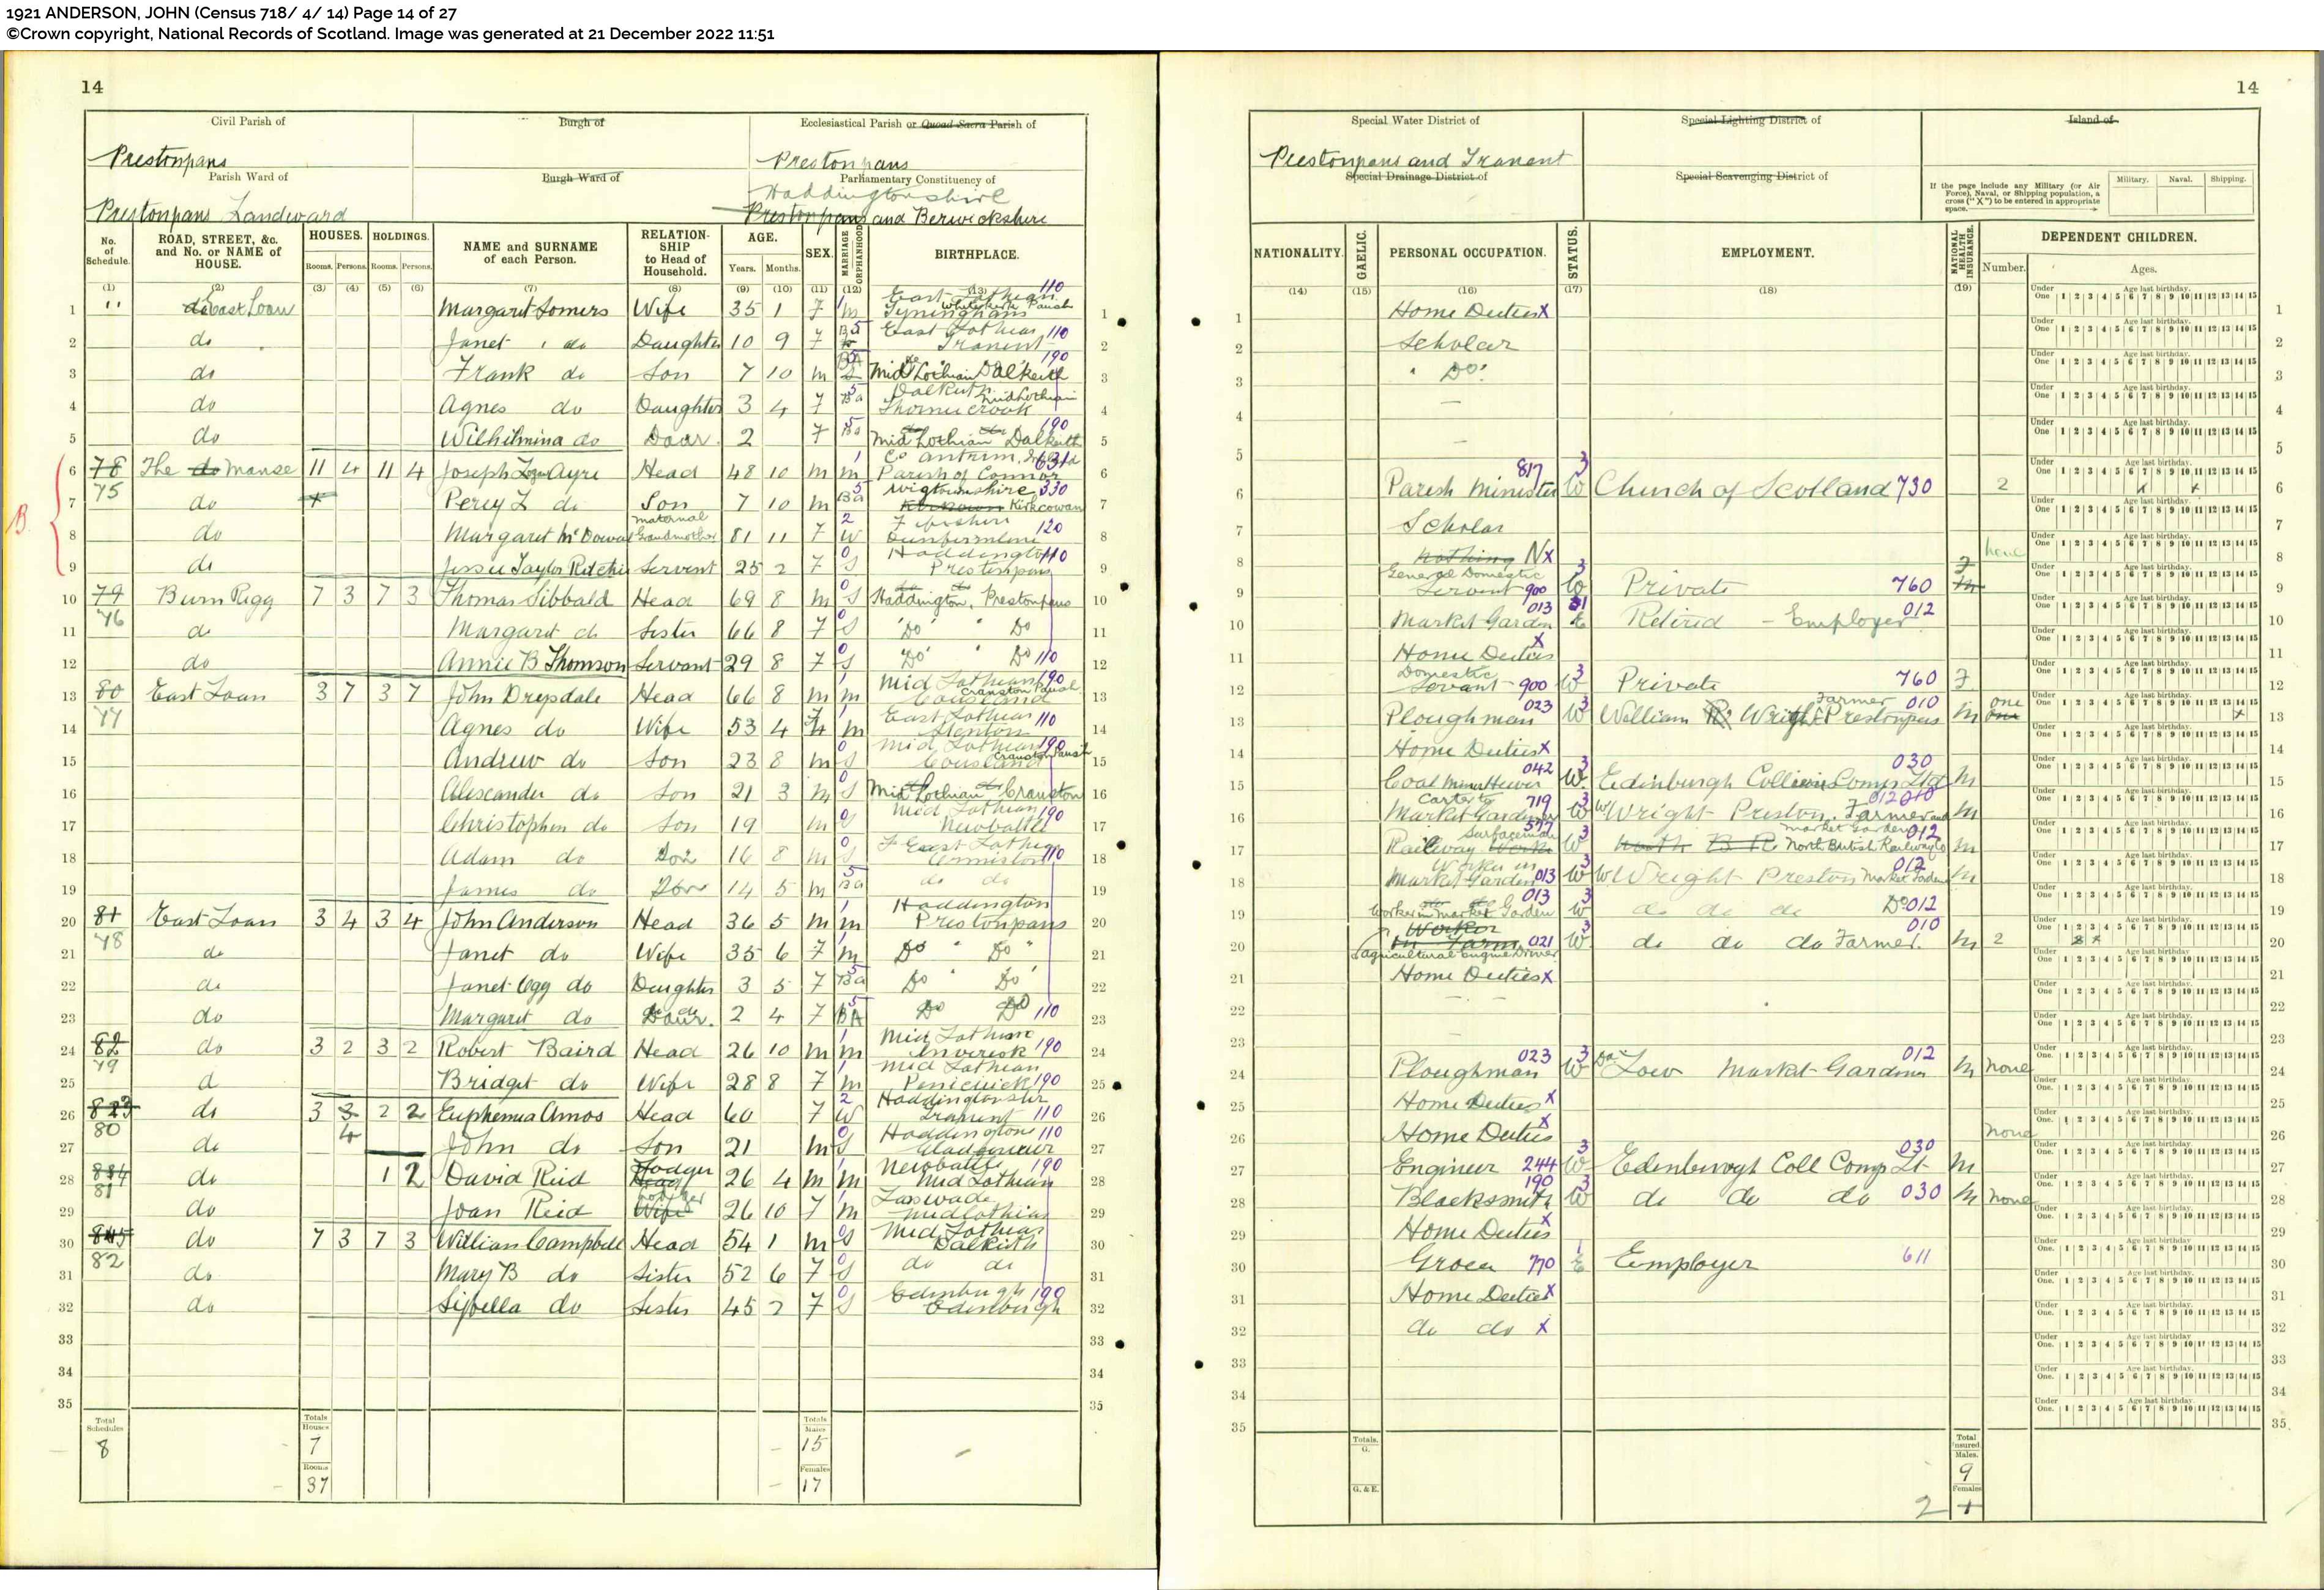 1921 ANDERSON, JOHN (Census 718/ 4/ 14) Page 14 of 27
©Crown copyright, National Records of Scotland. Image was generated at 21 December 2022 11:51
14
Civil Parish of Burgh of Ecclesiastical Parish or Quoad Sacra Parish of
Prestonpans Prestonpans
Parish Ward of Burgh Ward of Parliamentary Constituency of
Haddingtonshire
Prestonpans Landward Prestonpans and Berwickshire
No. of Schedule. ROAD, STREET, &c. and No. or NAME of HOUSE. HOUSES. HOLDINGS. NAME and SURNAME of each Person. RELATION-SHIP to Head of Household. AGE. SEX. MARRIAGE ORPHANHOOD BIRTHPLACE.
Rooms. Persons. Rooms. Persons. Years. Months.
(1) (2) (3) (4) (5) (6) (7) (8) (9) (10) (11) (12) (13)
1 " do East Loan Margaret Somers Wife 35 1 F m East Lothian Tyninghame Whitekirk Parish 110 1
2 do Janet do Daughter 10 9 F East Lothian Tranent 110 2
3 do Frank do Son 7 10 m Mid Lothian Dalkeith 190 3
4 do Agnes do Daughter 3 4 F Ba Dalkeith Midlothian 4
5 do Wilhilmina do Daur. 2 F Ba Mid Lothian Dalkeith 190 5
6 78 75 The do Manse 11 4 11 4 Joseph Logan Ayre Head 48 10 m m Co Antrim, Parish of Connor 631 6
7 do Percy L do Son 7 10 m Ba Wigtownshire Kirkcowan 330 7
8 do Margaret McDowal maternal Grandmother 81 11 F W Fifeshire Dunfermline 120 8
9 do Jessie Taylor Ritchie Servent 25 2 F S Haddington Prestonpans 110 9
B.
10 79 76 Burn Rigg 7 3 7 3 Thomas Sibbald Head 69 8 m S Haddington, Prestonpans 10
11 do Margaret do Sister 66 8 F S Do Do 11
12 do Annie B Thomson Servant 29 8 F S Do Do 110 12
13 80 77 East Loan 3 7 3 7 John Drysdale Head 66 8 m m Mid Lothian Cousland Cranston Parish 190 13
14 Agnes do Wife 53 4 F m East Lothian Stenton 110 14
15 Andrew do Son 23 8 m S Mid Lothian Cousland Cranston Parish 190 15
16 Alexander do Son 21 3 m S Mid Lothian Cranston 16
17 Christopher do Son 19 m S Mid Lothian Newbattle 190 17
18 Adam do Son 16 8 m S East Lothian Ormiston 110 18
19 James do Son 14 5 m Ba do do 19
20 81 78 East Loan 3 4 3 4 John Anderson Head 36 5 m m Haddington Prestonpans 20
21 do Janet do Wife 35 6 F m Do Do 21
22 do Janet Ogg do Daughter 3 5 F Ba Do Do 22
23 do Margaret do Daur. 2 4 F BA Do Do 110 23
24 82 79 do 3 2 3 2 Robert Baird Head 26 10 m m Mid Lothian Inveresk 190 24
25 d Bridget do Wife 28 8 F m Mid Lothian Penicuick 190 25
26 80 do 3 3 4 2 2 Euphemia Amos Head 60 F W Haddingtonshire Tranent 110 26
27 do John do Son 21 m S Haddington Gladsmuir 110 27
28 81 do 1 2 David Reid Lodger Head 26 4 m m Newbattle Mid Lothian 190 28
29 do Joan Reid Lodger Wife 26 10 F m Lasswade Midlothian 29
30 82 do 7 3 7 3 William Campbell Head 54 1 m S Mid Lothian Dalkeith 30
31 do Mary B do Sister 52 6 F S do do 31
32 do Sibella do Sister 45 2 F S Edinburgh Edinburgh 190 32
33 33
34 34
35 35
Total Schedules 8 Totals Houses 7 Rooms 37 Totals Males 15 Females 17
14
Special Water District of Special Lighting District of Island of
Prestonpans and Tranent
Special Drainage District of Special Scavenging District of
If the page include any Military (or Air Force), Naval, or Shipping population, a cross ("X") to be entered in appropriate space. Military. Naval. Shipping.
NATIONALITY. GAELIC. PERSONAL OCCUPATION. STATUS. EMPLOYMENT. NATIONAL HEALTH INSURANCE. DEPENDENT CHILDREN.
Number. Ages.
(14) (15) (16) (17) (18) (19)
Under One 1 2 3 4 5 6 7 8 9 10 11 12 13 14 15 Age last birthday.
1 Home Duties X 1
2 Scholar 2
3 Do 3
4 — 4
5 — 5
6 Parish Minister 817 3 W Church of Scotland 730 2 6
7 Scholar 7
8 Nothing N X none 8
9 General Domestic Servent 900 3 W Private 760 9
10 Market Garden 013 1 E Retired - Employer 012 10
11 Home Duties X 11
12 Domestic Servant 900 3 W Private 760 F 12
13 Ploughman 023 3 W William R. Wright Farmer Prestonpans 010 m one 13
14 Home Duties X 14
15 Coal Miner Hewer 042 3 W Edinburgh Collieries Comp Ltd 030 m 15
16 Carter to Market Gardener 719 3 W W Wright Preston. Farmer and market Gardener 012 010 m 16
17 Railway Surfaceman 577 3 W North B R North British Railway Co m 17
18 Worker in Market Garden 013 W W Wright Preston Market Garden 012 m 18
19 Worker in Market Garden 013 3 W do do do Do 012 19
20 Worker in Farm 021 (agricultural Engine Driver) 3 W do do do Farmer. 010 m 2 20
21 Home Duties X 21
22 — 22
23 — 23
24 Ploughman 023 3 W Low Market Gardner 012 m none 24
25 Home Duties X 25
26 Home Duties X none 26
27 Engineer 244 3 W Edenburogh Coll Comp Lt 030 m 27
28 Blacksmith 190 3 W do do do 030 m none 28
29 Home Duties X 29
30 Grocer 770 1 E Employer 611 30
31 Home Duties X 31
32 do do X 32
33 33
34 34
35 35
Totals. G. G. & E. Total Insured. Males. 9 Females 2